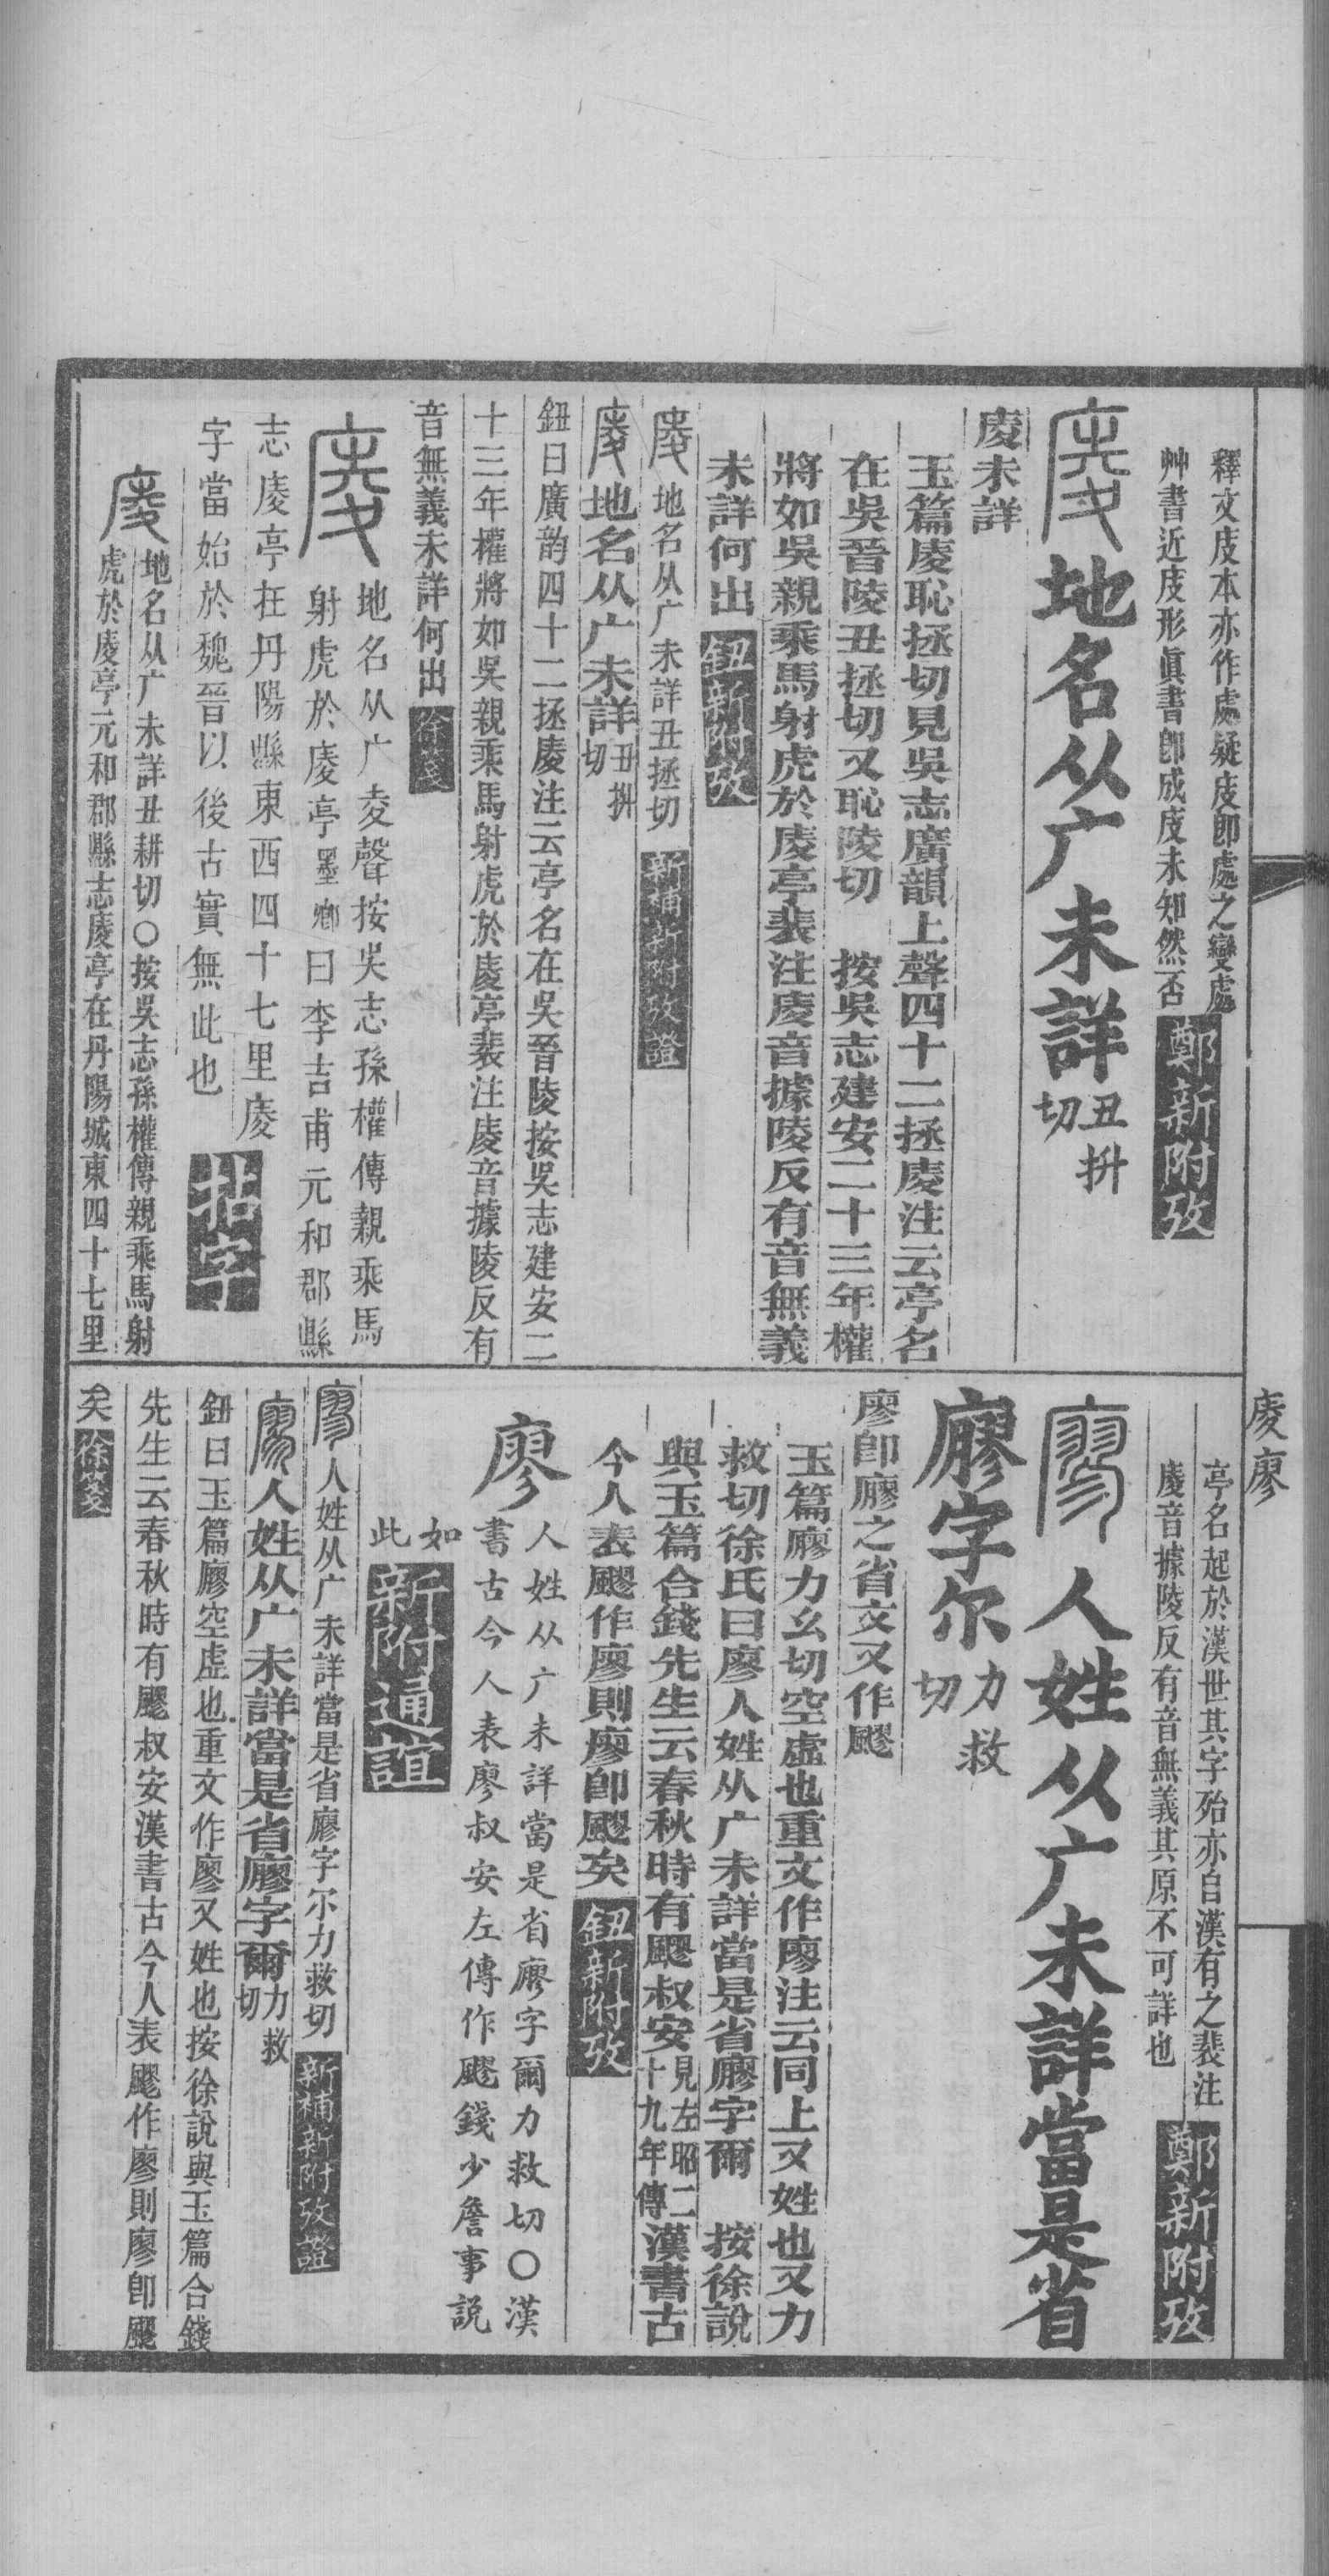 釋文庋本亦作處疑庋卽處之變處
艸書近庋形眞書卽成庋未知然否
鄭新附攷
庱地名从广未詳丑拼切
庱未詳
玉篇庱恥拯切見吳志廣韻上聲四十二拯庱注云亭名
在吳晉陵丑拯切又恥陵切　按吳志建安二十三年權
將如吳親乘馬射虎於庱亭裴注庱音攄陵反有音無義
未詳何出鈕新附攷
庱地名从广未詳丑拯切　新補新附攷證
庱地名从广未詳丑拼切
鈕曰廣韵四十二拯庱注云亭名在吳晉陵按吳志建安二
十三年權將如吳親乘馬射虎於庱亭裴注庱音攄陵反有
音無義未詳何出徐箋
庱
地名从广夌聲按吳志孫權傳親乘馬
射虎於庱亭墨鄉曰李吉甫元和郡縣
志庱亭在丹陽縣東西四十七里庱
字當始於魏晉以後古實無此也
拈字
庱
地名从广未詳丑耕切○按吳志孫權傳親乘馬射
虎於庱亭元和郡縣志庱亭在丹陽城東四十七里
庱廖
亭名起於漢世其字殆亦自漢有之裴注
庱音攄陵反有音無義其原不可詳也
鄭新附攷
廖人姓从广未詳當是省
廫字尔力救切
廖卽廫之省文又作飂
玉篇廫力幺切空虛也重文作廖注云同上又姓也又力
救切徐氏曰廖人姓从广未詳當是省廫字爾　按徐說
與玉篇合錢先生云春秋時有飂叔安見左昭二十九年傳漢書古
今人表飂作廖則廖卽飂矣鈕新附攷
廖
人姓从广未詳當是省廖字爾力救切○漢
書古今人表廖叔安左傳作飂錢少詹事說
如此
新附通誼
廖人姓从广未詳當是省廫字尔力救切　新補新附攷證
廖人姓从广未詳當是省廫字爾力救切
鈕曰玉篇廫空虛也重文作廖又姓也按徐說與玉篇合錢
先生云春秋時有飂叔安漢書古今人表飂作廖則廖卽飂
矣徐箋